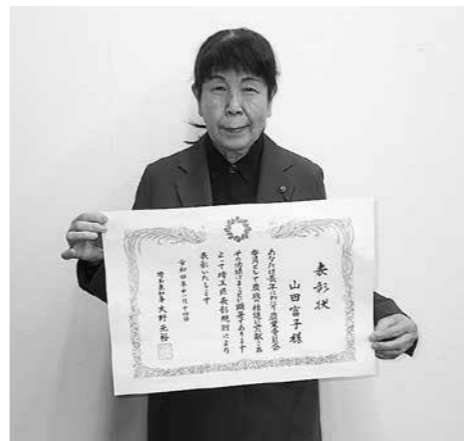 表彰状
山田富子様
あなたは長年にわたり農業委員会
委員として農政の推進に貢献され
その功績はまことに顕著であります
よって埼玉県表彰規則により
表彰いたします
令和四年十一月十四日
埼玉県知事 大野元裕